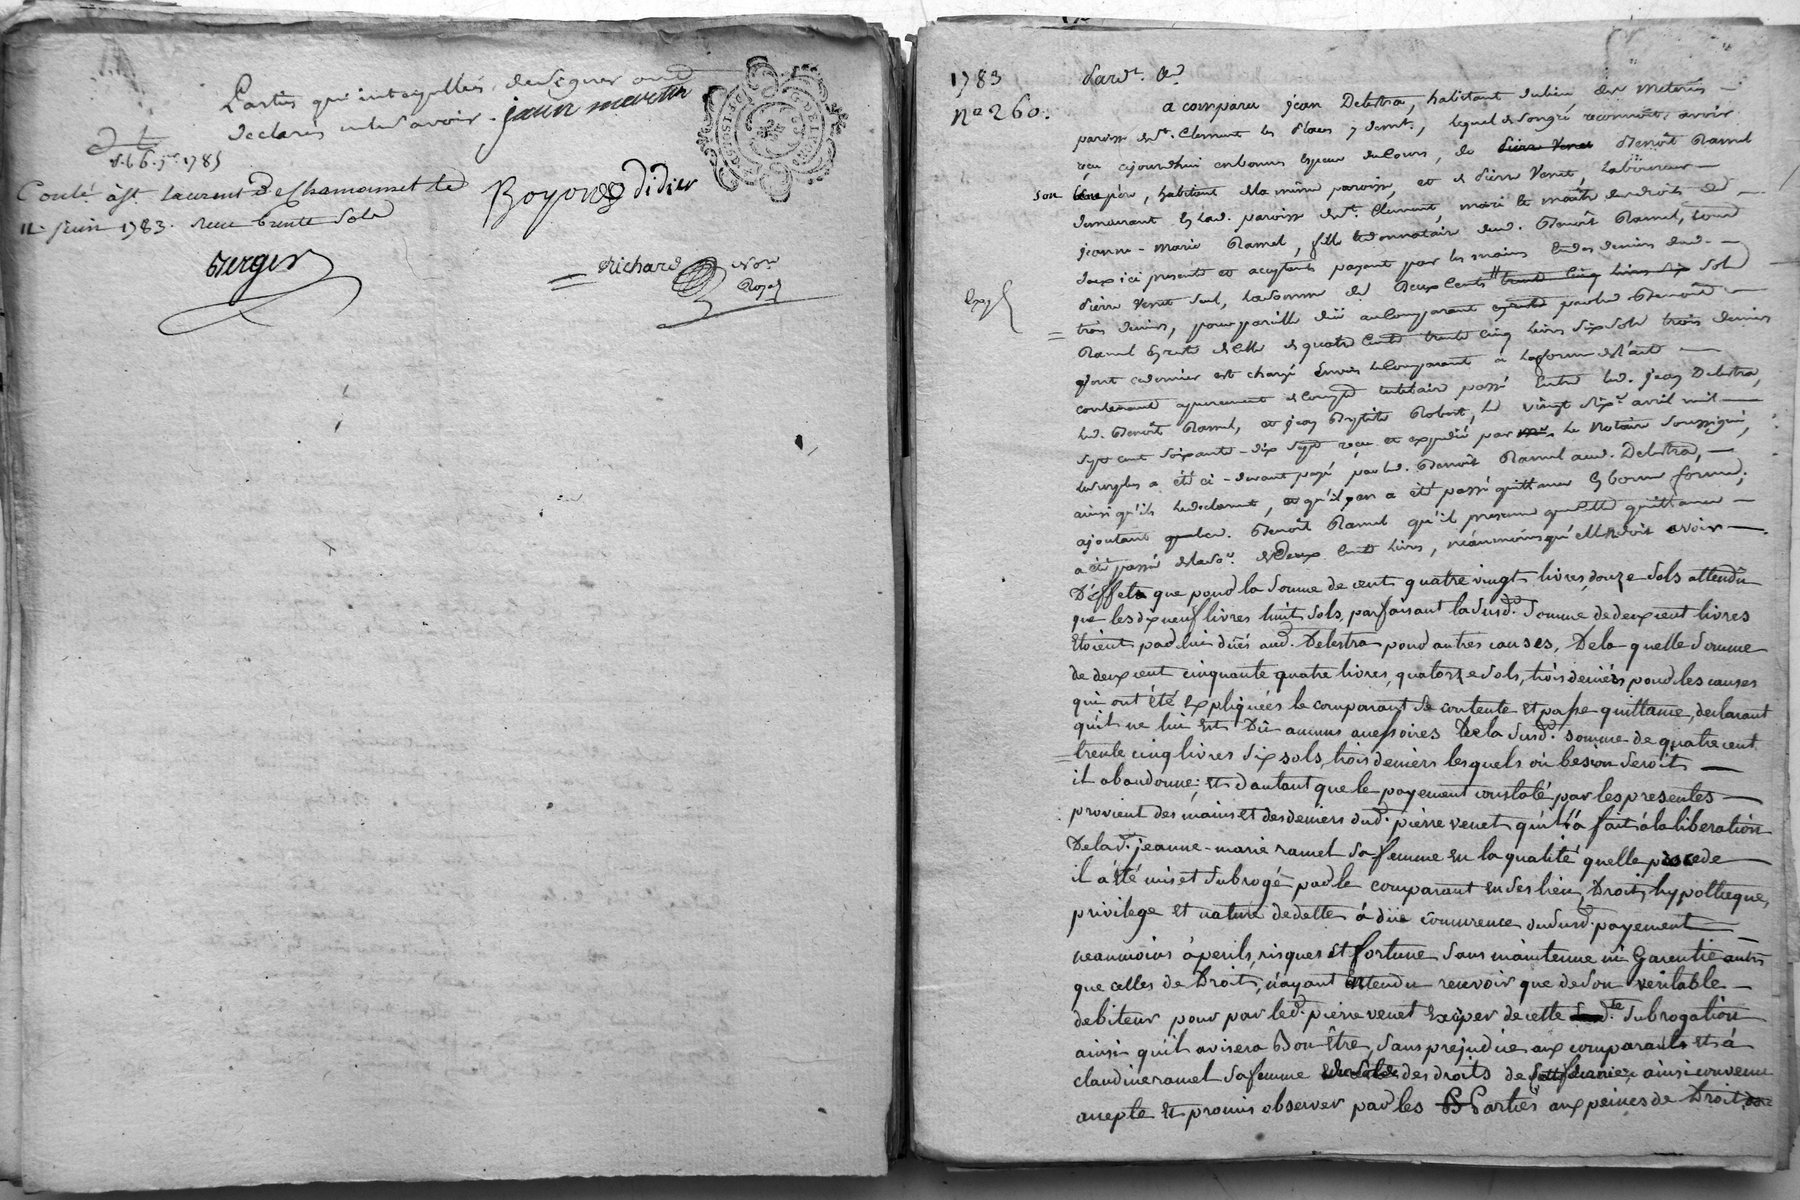 Parties qui interpellées de signer ont
declarés ne le savoir. jean martin
Conlé à St. Laurent De Chamousset le
11. juin 1783. reçu trente sols
Boyond didier
Berger
Richard Not.re
Royal
1783
N.o 260.
Pardt.
a comparu jean Delestra, habitant du lieu des meteries
paroisse de St. Clement les places, lequel de son gré reconnoit avoir
reçu ajourdhui en bonnes especes du Cours, de pierre Venet Benoît Ramel
son pere, habitant de la même paroisse, et de pierre Venet, laboureur
demeurant en lad. paroisse de St. Clement, mari et maître des droits de
jeanne-marie Ramel, fille et donnataire dud. Benoît Ramel, tous
deux ici presents et acceptants payant par les mains et des deniers dud.
pierre Venet seul, la somme de Deux Cents trente cinq livres six sols
trois deniers, pour pareille düe au Comparant par led. Benoît
Ramel de celle de quatre Cents trente cinq livres six sols trois deniers
dont ce dernier est chargé envers le Comparant à la forme de l'acte
contenant passé entre led. jean Delestra,
led. Benoît Ramel, et jean Baptiste Robert, le vingt six avril mil
sept cent soixante-dix sept reçu et expedié par le Notaire soussigné,
le surplus a été ci-devant payé par led. Benoît Ramel aud. Delestra,
ainsi qu'ils le declarent, et qu'il en a été passé quittance en bonne forme,
ajoutant que led. Benoît Ramel qu'il presume que cette quittance
a été passée de la so.e de Deux Cents livres, neanmoins qu'elle ne doit avoir
D'effets que pour la somme de cent quatre vingt livres, douze sols attendu
que les dix neuf livres huit sols, parfaisant la susd. somme de deux cent livres
Etoient par lui dües aud. Delestra pour autres causes, De la quelle somme
de deux cent cinquante quatre livres, quatorze sols, trois deniers pour les causes
qui ont été Expliquées le comparant se contente et passe quittance, declarant
qu'il ne lui est Dû aucuns accessoires De la susd. somme de quatre cent
trente cinq livres six sols, trois deniers lesquels où besoin seroit
il abandonne; et d'autant que le payement constaté par les presentes
provient des mains et des deniers dud. pierre venet qu'il à fait à la liberation
De lad. jeanne-marie ramel sa femme en la qualité quelle procede
il à été mis et subrogé par le comparant en ses lieu, Droit, hypotheque,
privilege et nature de dette à düe concurrence dudusd. payement
neanmoins à perils, risques et fortune sans maintenue ni Garentie autre
que celles de Droit, n'ayant entendu recevoir que de son veritable
debiteur pour par led. pierre venet Exiper de cette subrogation
ainsi qu'il avisera Bon être, sans prejudice aux comparants et à
claudine ramel sa femme des droits de cette derniere, ainsi convenu
accepté et promis observer par les Parties aux peines de Droit